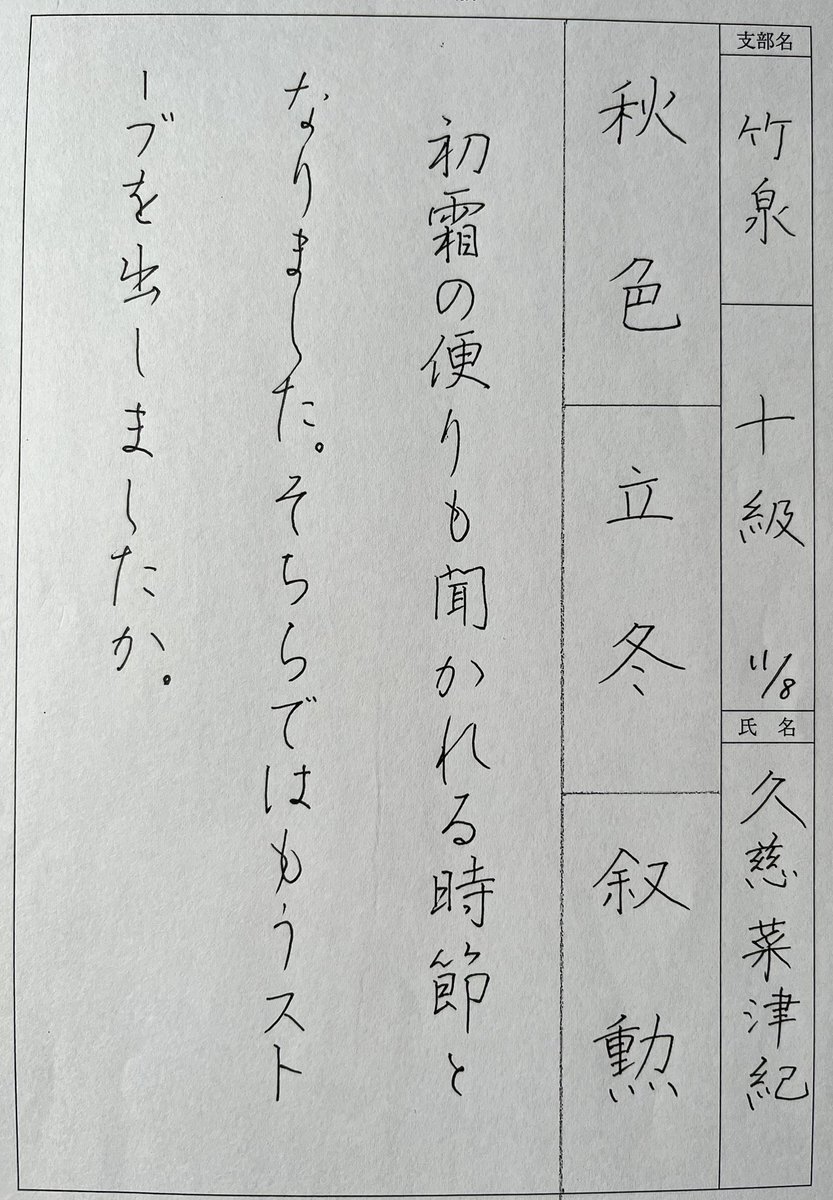 支部名
竹泉
十級
11/8
氏名
久慈菜津紀
秋色
立冬
叙勲
初霜の便りも聞かれる時節と
なりました。そちらではもうスト
ーブを出しましたか。